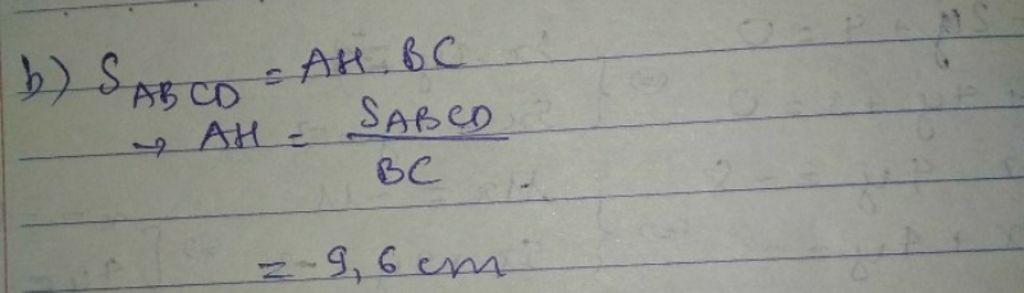 b) S ABCD = AH. BC
→ AH = SABCD
BC
= 9,6 cm